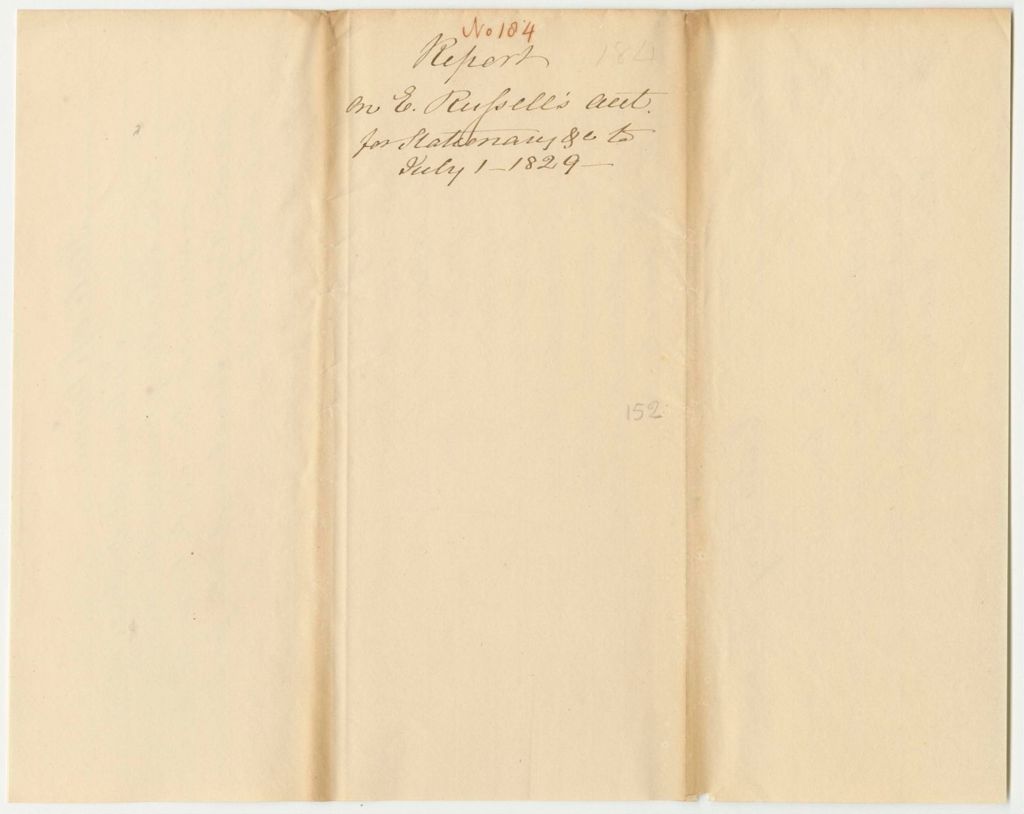 No 184
Report 184
on E. Russell's acct.
for Stationary &c to
July 1 - 1829 -
152